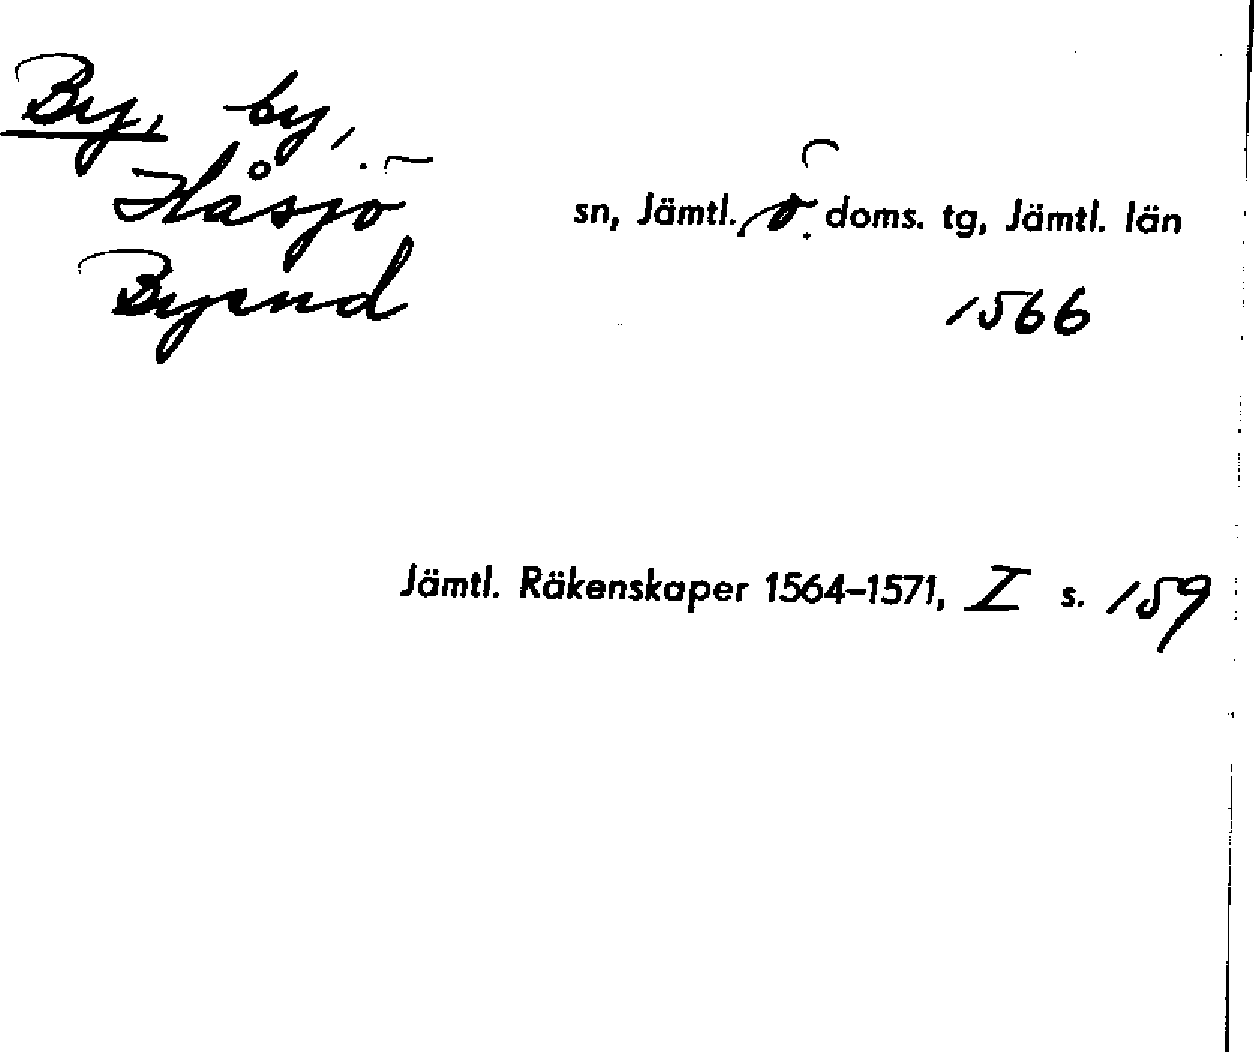 By, by,
Håsjö sn, Jämtl. ö. doms. tg, Jämtl. län
Byend 1566
Jämtl. Räkenskaper 1564-1571, I s. 159